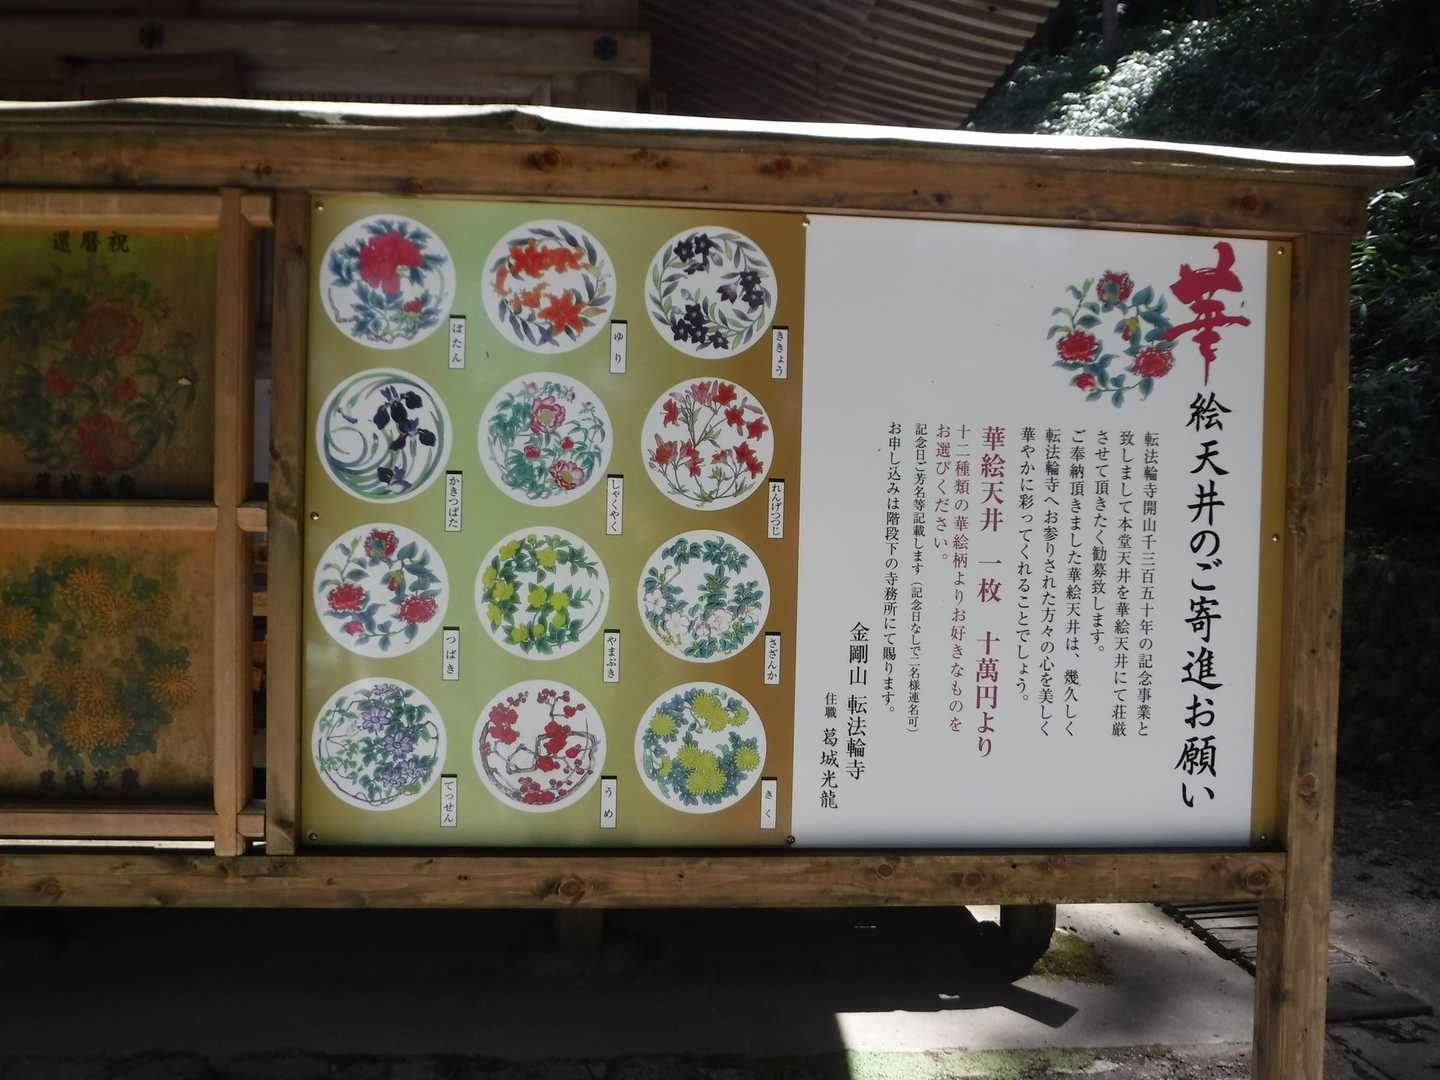 華
絵天井のご寄進お願い
転法輪寺開山千三百五十年の記念事業と
致しまして本堂天井を華絵天井にて荘厳
させて頂きたく勧募致します。
ご奉納頂きました華絵天井は、幾久しく
転法輪寺へお参りされた方々の心を美しく
華やかに彩ってくれることでしょう。
華絵天井 一枚 十萬円より
十二種類の華絵柄よりお好きなものを
お選びください。
記念日ご芳名等記載します(記念日なしで二名様連名可)
お申し込みは階段下の寺務所にて賜ります。
金剛山 転法輪寺
住職 葛城光龍
ききょう
ゆり
ぼたん
れんげつつじ
しゃくやく
かきつばた
さざんか
やまぶき
つばき
きく
うめ
てっせん
還暦祝
葛城光龍
葛城光龍